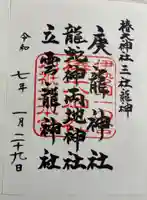 椿大神社 三社龍神
庚龍神社
龍蛇神地神社
立雲龍神社
令和七年 一月二十九日